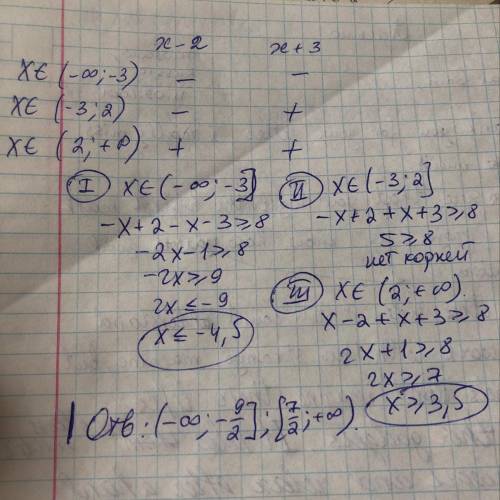 x-2 x+3
X∈ (-∞; -3) - -
X∈ (-3; 2) - +
X∈ (2; +∞) + +
I X∈ (-∞; -3]
-X+2-X-3≥8
-2X-1≥8
-2X≥9
2X≤-9
X≤-4,5
II X∈ (-3; 2]
-X+2+X+3≥8
5≥8
нет корней
III X∈ (2; +∞).
X-2+X+3≥8
2X+1≥8
2X≥7
X≥3,5
Отв: (-∞; -9/2]; [7/2; +∞).